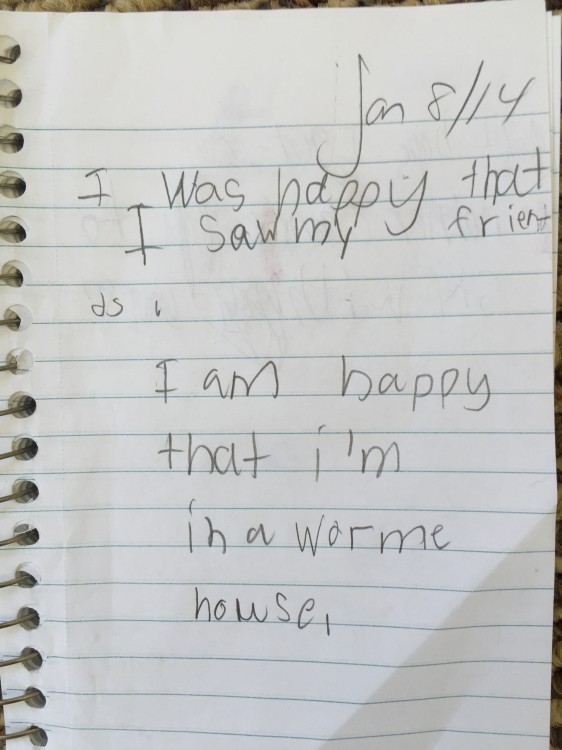 Jan 8/14
I was happy that
I saw my frien
ds.
I am happy
that i'm
in a worme
howse,